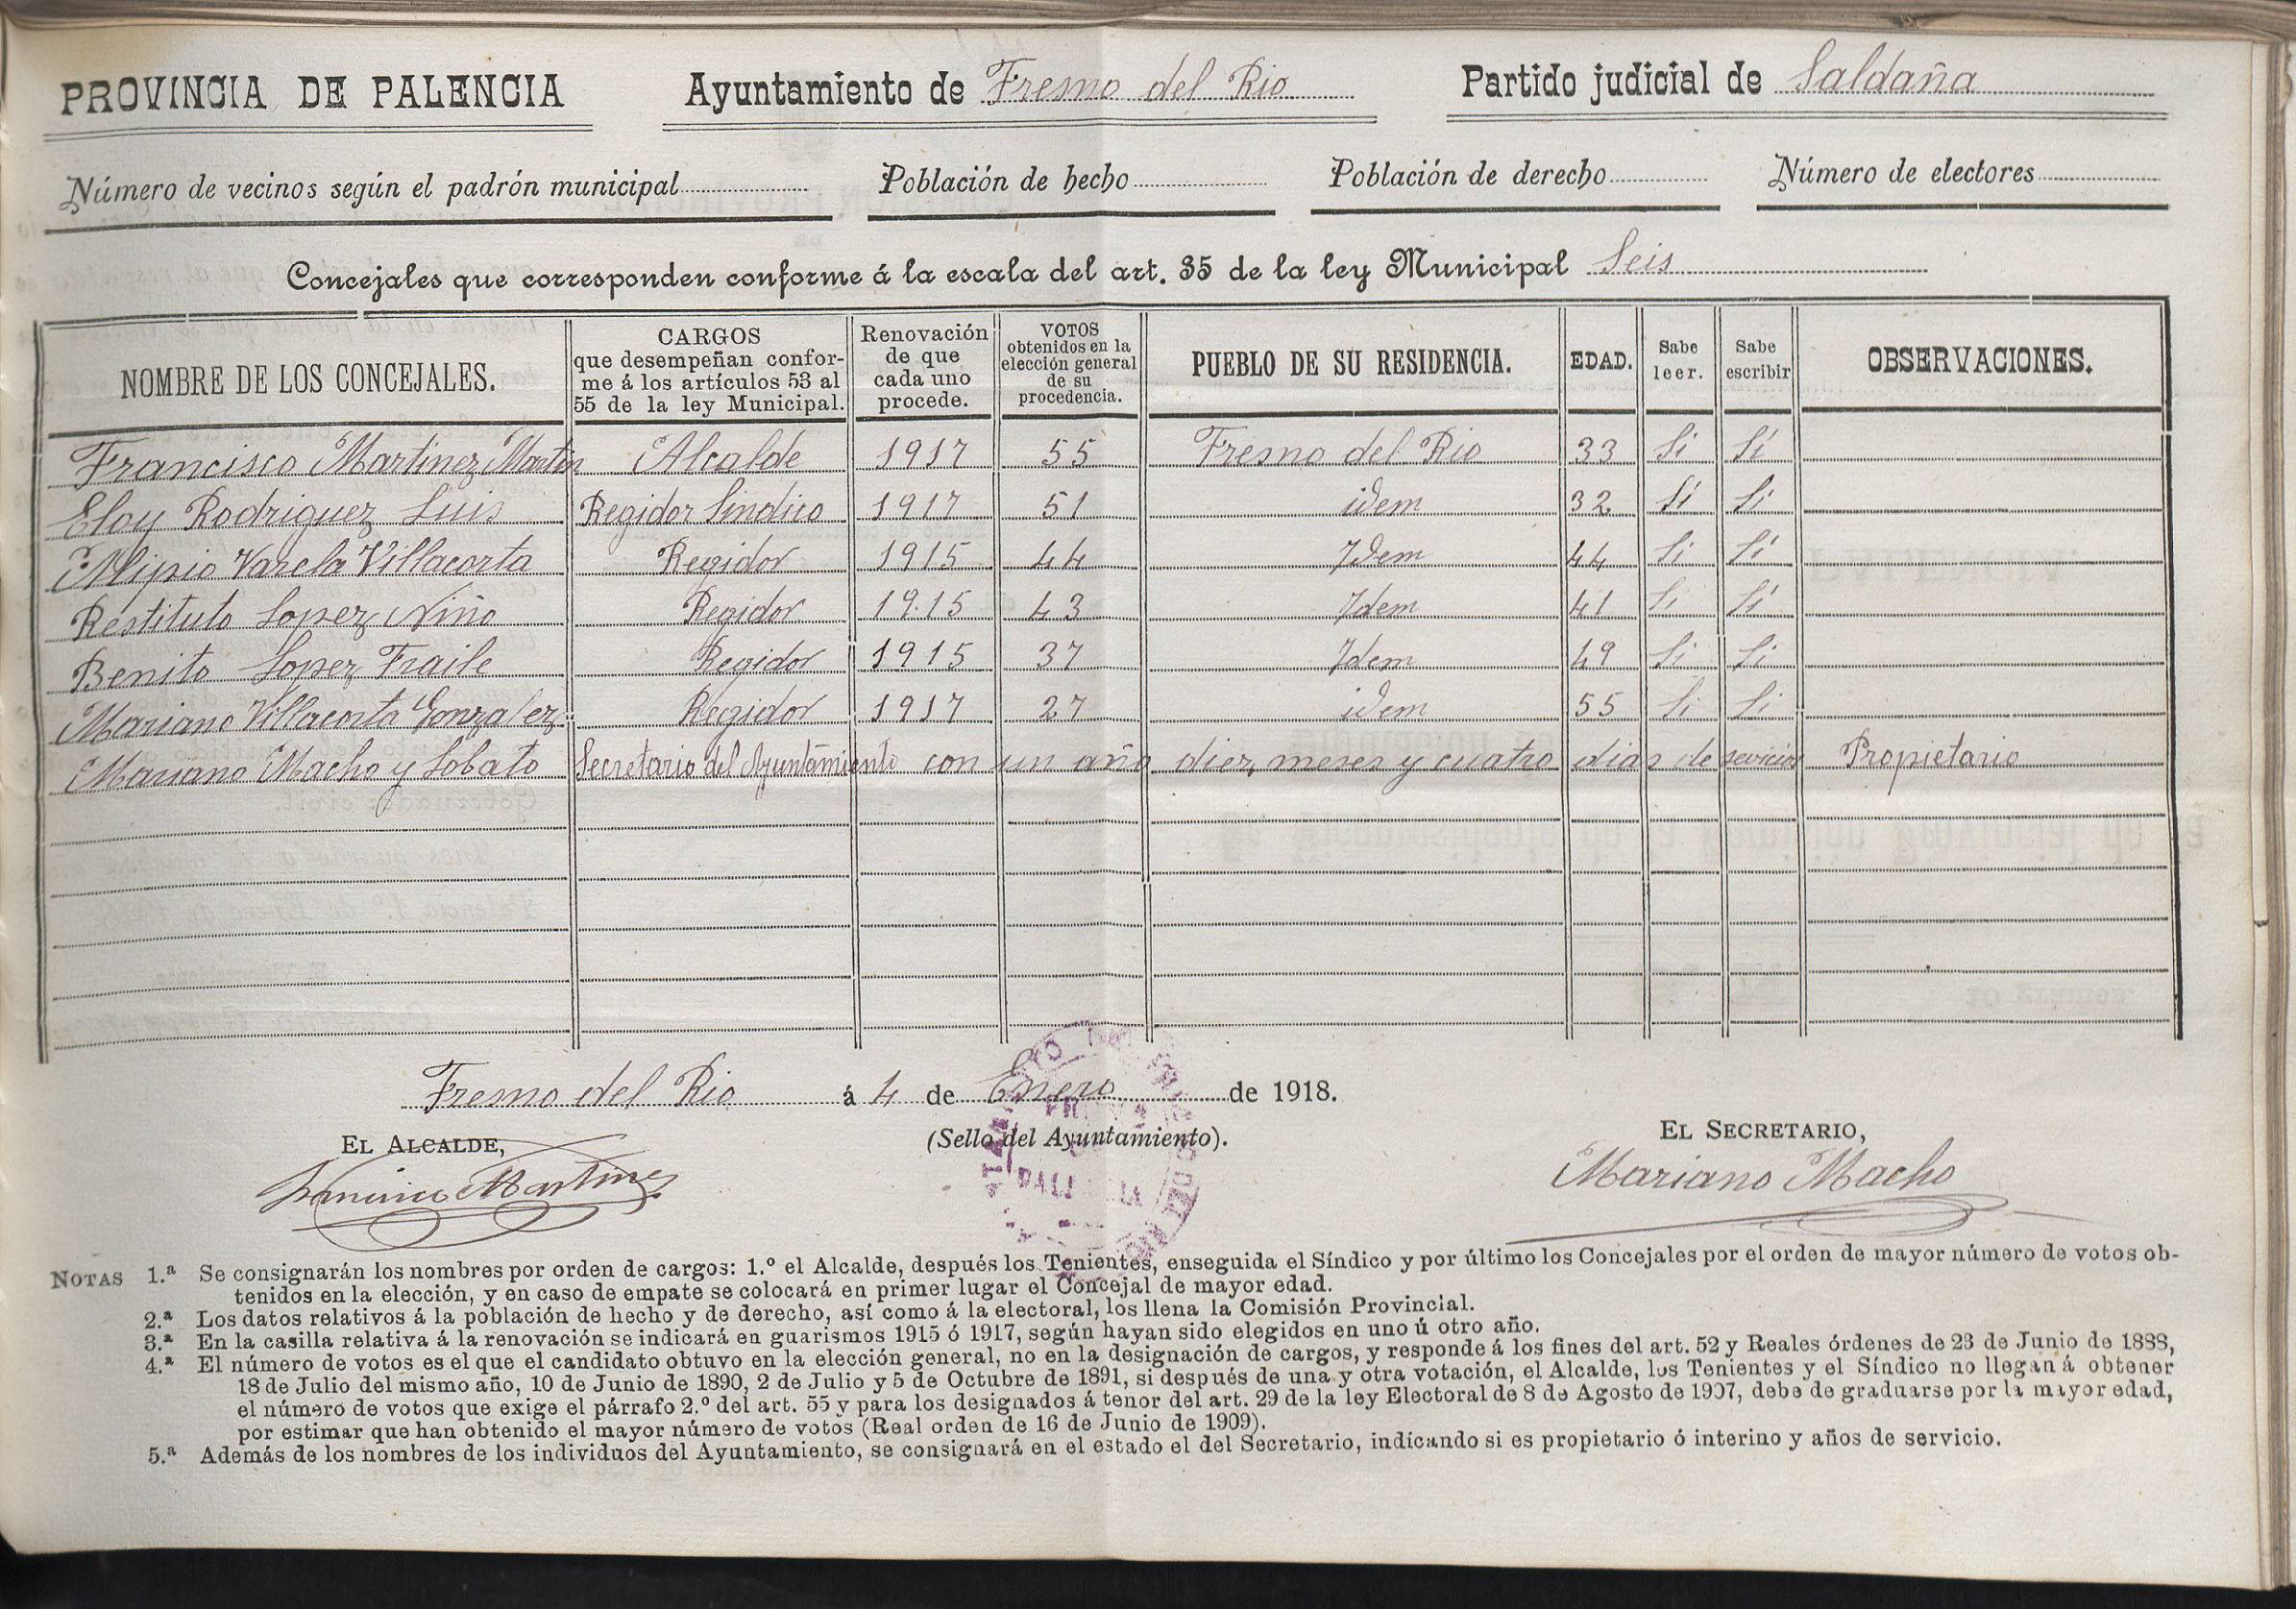 PROVINCIA DE PALENCIA Ayuntamiento de Fresno del Rio Partido judicial de Saldaña
Número de vecinos según el padrón municipal Población de hecho Población de derecho Número de electores
Concejales que corresponden conforme á la escala del art. 35 de la ley Municipal Seis
NOMBRE DE LOS CONCEJALES. CARGOS que desempeñan confor-me á los artículos 53 al 55 de la ley Municipal. Renovación de que cada uno procede. VOTOS obtenidos en la elección general de su procedencia. PUEBLO DE SU RESIDENCIA. EDAD. Sabe leer. Sabe escribir OBSERVACIONES.
Francisco Martinez Martin Alcalde 1917 55 Fresno del Rio 33 Si Sí
Eloy Rodriguez Luis Regidor Sindico 1917 51 idem 32 Si Si
Alipio Varela Villacorta Regidor 1915 44 Idem 44 Si Sí
Restituto Lopez Niño Regidor 1915 43 Idem 41 Si Sí
Benito Lopez Fraile Regidor 1915 37 Idem 49 Si Si
Mariano Villacorta Gonzalez Regidor 1917 27 idem 55 Si Si
Mariano Macho y Lobato Secretario del Ayuntamiento con un año diez meses y cuatro dias de sevicios Propietario
Fresno del Rio á 4 de Enero de 1918.
EL ALCALDE, (Sello del Ayuntamiento). EL SECRETARIO,
Francisco Martinez Mariano Macho
NOTAS 1.ª Se consignarán los nombres por orden de cargos: 1.º el Alcalde, después los Tenientes, enseguida el Síndico y por último los Concejales por el orden de mayor número de votos ob-
tenidos en la elección, y en caso de empate se colocará en primer lugar el Concejal de mayor edad.
2.ª Los datos relativos á la población de hecho y de derecho, así como á la electoral, los llena la Comisión Provincial.
3.ª En la casilla relativa á la renovación se indicará en guarismos 1915 ó 1917, según hayan sido elegidos en uno ú otro año.
4.ª El número de votos es el que el candidato obtuvo en la elección general, no en la designación de cargos, y responde á los fines del art. 52 y Reales órdenes de 23 de Junio de 1888,
18 de Julio del mismo año, 10 de Junio de 1890, 2 de Julio y 5 de Octubre de 1891, si después de una y otra votación, el Alcalde, los Tenientes y el Síndico no llegan á obtener
el número de votos que exige el párrafo 2.º del art. 55 y para los designados á tenor del art. 29 de la ley Electoral de 8 de Agosto de 1907, debe de graduarse por la mayor edad,
por estimar que han obtenido el mayor número de votos (Real orden de 16 de Junio de 1909).
5.ª Además de los nombres de los individuos del Ayuntamiento, se consignará en el estado el del Secretario, indicando si es propietario ó interino y años de servicio.